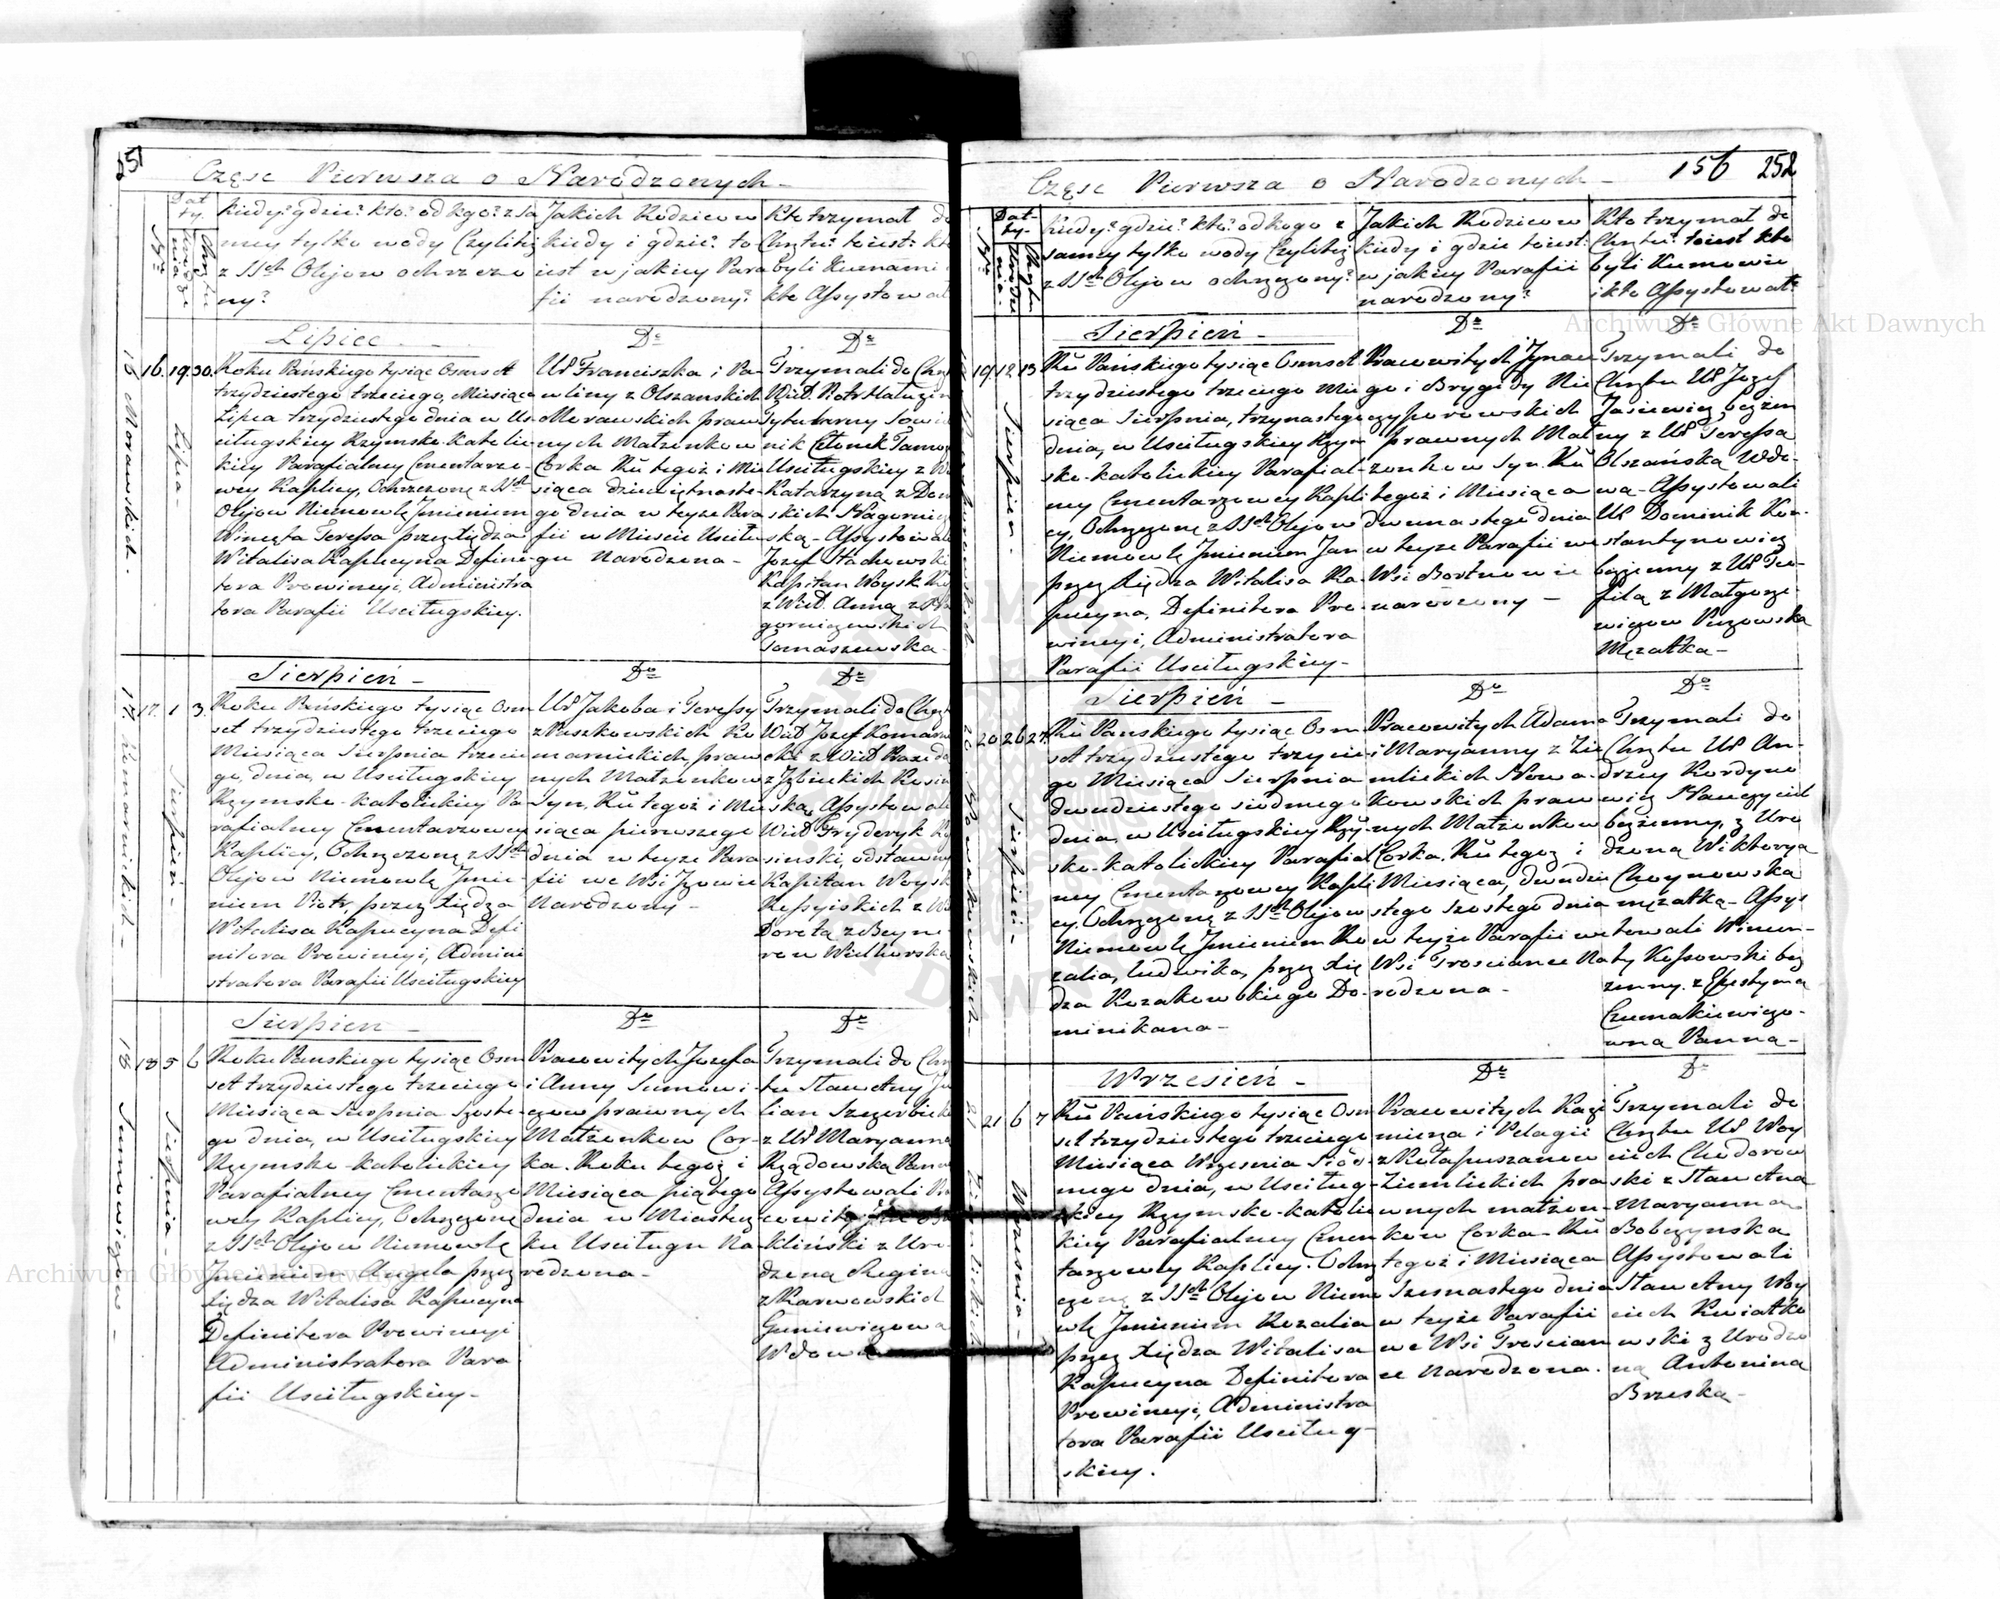 251
Częsc Pierwsza o Narodzonych -
Dat
ty.
Nro
Urodze
nia
Chrztu
kiedy? gdzie? kto? od kogo? z sa
mey tylko wody Czylitéz
z SSch Olejow ochrzczo
ny?
Jakich Rodzicow
kiedy i gdzie? to
iest w jakiey Para
fii narodzony?
Kto trzymał do
Chrztu? toiest: kto
byli Kumami
kto Assystował
Lipiec -
Do
Do
16 Morawskich.
16.
19.
30.
Lipca -
Roku Pańskiego tysiąc Osmset
trzydziestego trzeciego, Miesiąca
Lipca trzydziestego dnia w Us
ciługskiey Rzymsko-katolic
kiey Parafialney Cmentarzo-
wey Kaplicy, Ochrzczonę z SSch
Olejow Niemowlę Jmieniem
Wincęta Teressa przez Xiędza
Witalisa Kapucyna Defini
tora Prowincyi, Administra
tora Parafii Usciługskiey.
UU Franciszka i Pa
wliny z Olszanskich
Morawskich praw
nych Małżonkow
Corka Ru tegoż i Mie
siąca dziewiętnaste-
go dnia w teyze Para
fii w Miescie Usciłu
gu Narodzona -
Trzymali do Chrz
Wiel. Piotr
Tytularny Sowie
nik Członek Tamo
Usciługskiey z W
Katarzyną z Dom
skich Nagorni
ską - Assystowa
Jozef Stachowsk
Kapitan Woysk
z Wiel. Anną z
gorniczewskich
Tomaszewska -
Sierpień -
Do
Do
17. Komarnickich -
17.
1
3.
Sierpień -
Roku Pańskiego tysiąc Osm
set trzydziestego trzeciego
Miesiąca Sierpnia trzecie
go, dnia, w Usciługskiey
Rzymsko-katolickiey Pa
rafialney Cmentarzowey
Kaplicy, Ochrzczonę z SSch
Olejow Niemowlę Jmie-
niem Piotr, przez Xiędza
Witalisa Kapucyna Defi
nitora Prowincyi, Admini
stratora Parafii Usciługskiey
UU Jakoba i Teressy
z Paszkowskich Ko
marnickich, praw
nych Małżonkow
Syn, Ru tegoż i Mie
siąca pierwszego
dnia w teyze Para
fii we Wsi Jzowie
Narodzony -
Trzymali do Chrzt
Wiel Jozef Komar
cki z Wiel
z Jzbickich Rosin
ską, Assystowali
Wiel Fryderyk Ro
sinski, odstawny
Kapitan Woysk
Rossyiskich z Wi
Dorotą z Beyne
row Wielhorska
Sierpien -
Do
Do
18 Sumowiczow -
18
5
6
Sierpnia -
Roku Panskiego tysiąc Osm
set trzydziestego trzeciego
Miesiąca Sierpnia Szoste-
go dnia, w Usciługskiey
Rzymsko-katolickiey
Parafialney Cmentarzo
wey Kaplicy, Ochrzczonę
z SSch Olejow Niemowlę
Jmieniem Angela przez
Xiędza Witalisa Kapucyna
Definitora Prowincyi
Administratora Para
fii Usciługskiey -
Pracowitych Jozefa
i Anny Sumowi-
czow prawnych
Małżonkow Cor-
ka. Roku tegoż i
Miesiąca piątego
dnia w Miastecz
ku Usciługu Na
rodzona -
Trzymali do Chrz
tu Sławetny Ju
lian Szczerbick
z UU Maryanna
Rządowska Pann
Assystowali Pr
cowity
kliński z Uro-
dzoną Reginą
z Karwowskich
Guniewiczowa
Wdowa
156 252
Częsc Pierwsza o Narodzonych -
Dat-
ty.
Nro
Urodze
nia.
Chrztu
kiedy? gdzie? kto? od kogo z
samey tylko wody Czylitéz
z SSch Olejow ochrzczony?
Jakich Rodzicow
kiedy i gdzie toiest:
w jakiey Parafii
narodzony?
Kto trzymał do
Chrztu? toiest kto
byli Kumowie
i kto Assystował?
Sierpień -
Do
Do
19.
12.
13
Sierpień.
Ru Pańskiego tysiąc Osmset
trzydziestego trzeciego Mie
siąca Sierpnia, trzynastego
dnia, w Usciługskiey Rzym
sko-katolickiey Parafial-
ney Cmentarzowey Kapli
cy, Ochrzczonę z SSch Olejow
Niemowlę Jmieniem Jan
przez Xiędza Witalisa Ka
pucyna, Definitora Pro-
wincyi, Administratora
Parafii Usciługskiey -
Pracowitych Jgnac
go i Brygidy Nie
czyporowskich
prawnych Mał
żonkow Syn. Ru
tegoż i Miesiąca
dwunastego dnia
w teyze Parafii we
Wsi Bortnowie
narodzony -
Trzymali do
Chrztu UU Jozef
Jasiewicz, bezżen
ny z UU Teressą
Olszańską Wdo-
wą - Assystowali
UU Dominik Kon-
stantynowicz
bezżenny z UU Teo-
filą z Małgorze-
wiczow Puzowska
Mężatka -
Sierpień -
Do
Do
20 Nowakowskich -
20
26
27.
Sierpień -
Ru Panskiego tysiąc Osm
set trzydziestego trzecie
go Miesiąca Sierpnia
dwudziestego siodmego
dnia, w Usciługskiey Rzy-
sko-katolickiey Parafial
ney Cmentarzowey Kapli
cy, Ochrzczonę z SSch Olejow
Niemowlę Jmieniem Ro
zalia, Ludwika, przez Xię
dza Kozakowskiego Do-
minikana -
Pracowitych Adama
i Maryanny z Zie
mlickich Nowa-
kowskich praw
nych Małżonkow
Corka, Ru tegoż i
Miesiąca, dwudzie
stego szostego dnia
w teyże Parafii we
Wsi Trosciance Na
rodzona -
Trzymali do
Chrztu UU An-
drzey Kordyno
wicz Nauczyciel
bezżenny, z Uro
dzoną Wiktoryą
Choynowska
mężatką - Assys
towali Wincen-
ty Kossowski bez
żenny z Epestymą
Czumakiewiczo-
wną Panna -
Wrzesień -
Do
Do
21
21
6
7
Września -
Ru Pańskiego tysiąc Osm
set trzydziestego trzeciego
Miesiąca Wrzesnia Siód-
mego dnia, w Usciług-
skiey Rzymsko-katolic
kiey Parafialney Cmen
tarzowey Kaplicy. Ochrz
czonę z SSch Olejow Niemo
wlę Jmieniem Rozalia
przez Xiędza Witalisa
Kapucyna Definitora
Prowincyi, Administra
tora Parafii Usciług-
skiey.
Pracowitych Kazi
mierza i Pelagii
z Kołapuszanow
Ziemlickich pra
wnych małżon-
kow Corka - Ru
tegoż i Miesiąca
Szesnastego dnia
w teyże Parafii
we Wsi Troscian
ce Narodzona.
Trzymali do
Chrztu UU Woy
ciech Chodorow
ski z Sławetną
Maryanną
Bobczynska
Assystowali
Sławetny Woy
ciech Kwiatko
wski z Urodzo
ną Antoniną
Brzeska -
Archiwum Główne Akt Dawnych
Archiwum Główne Akt Dawnych